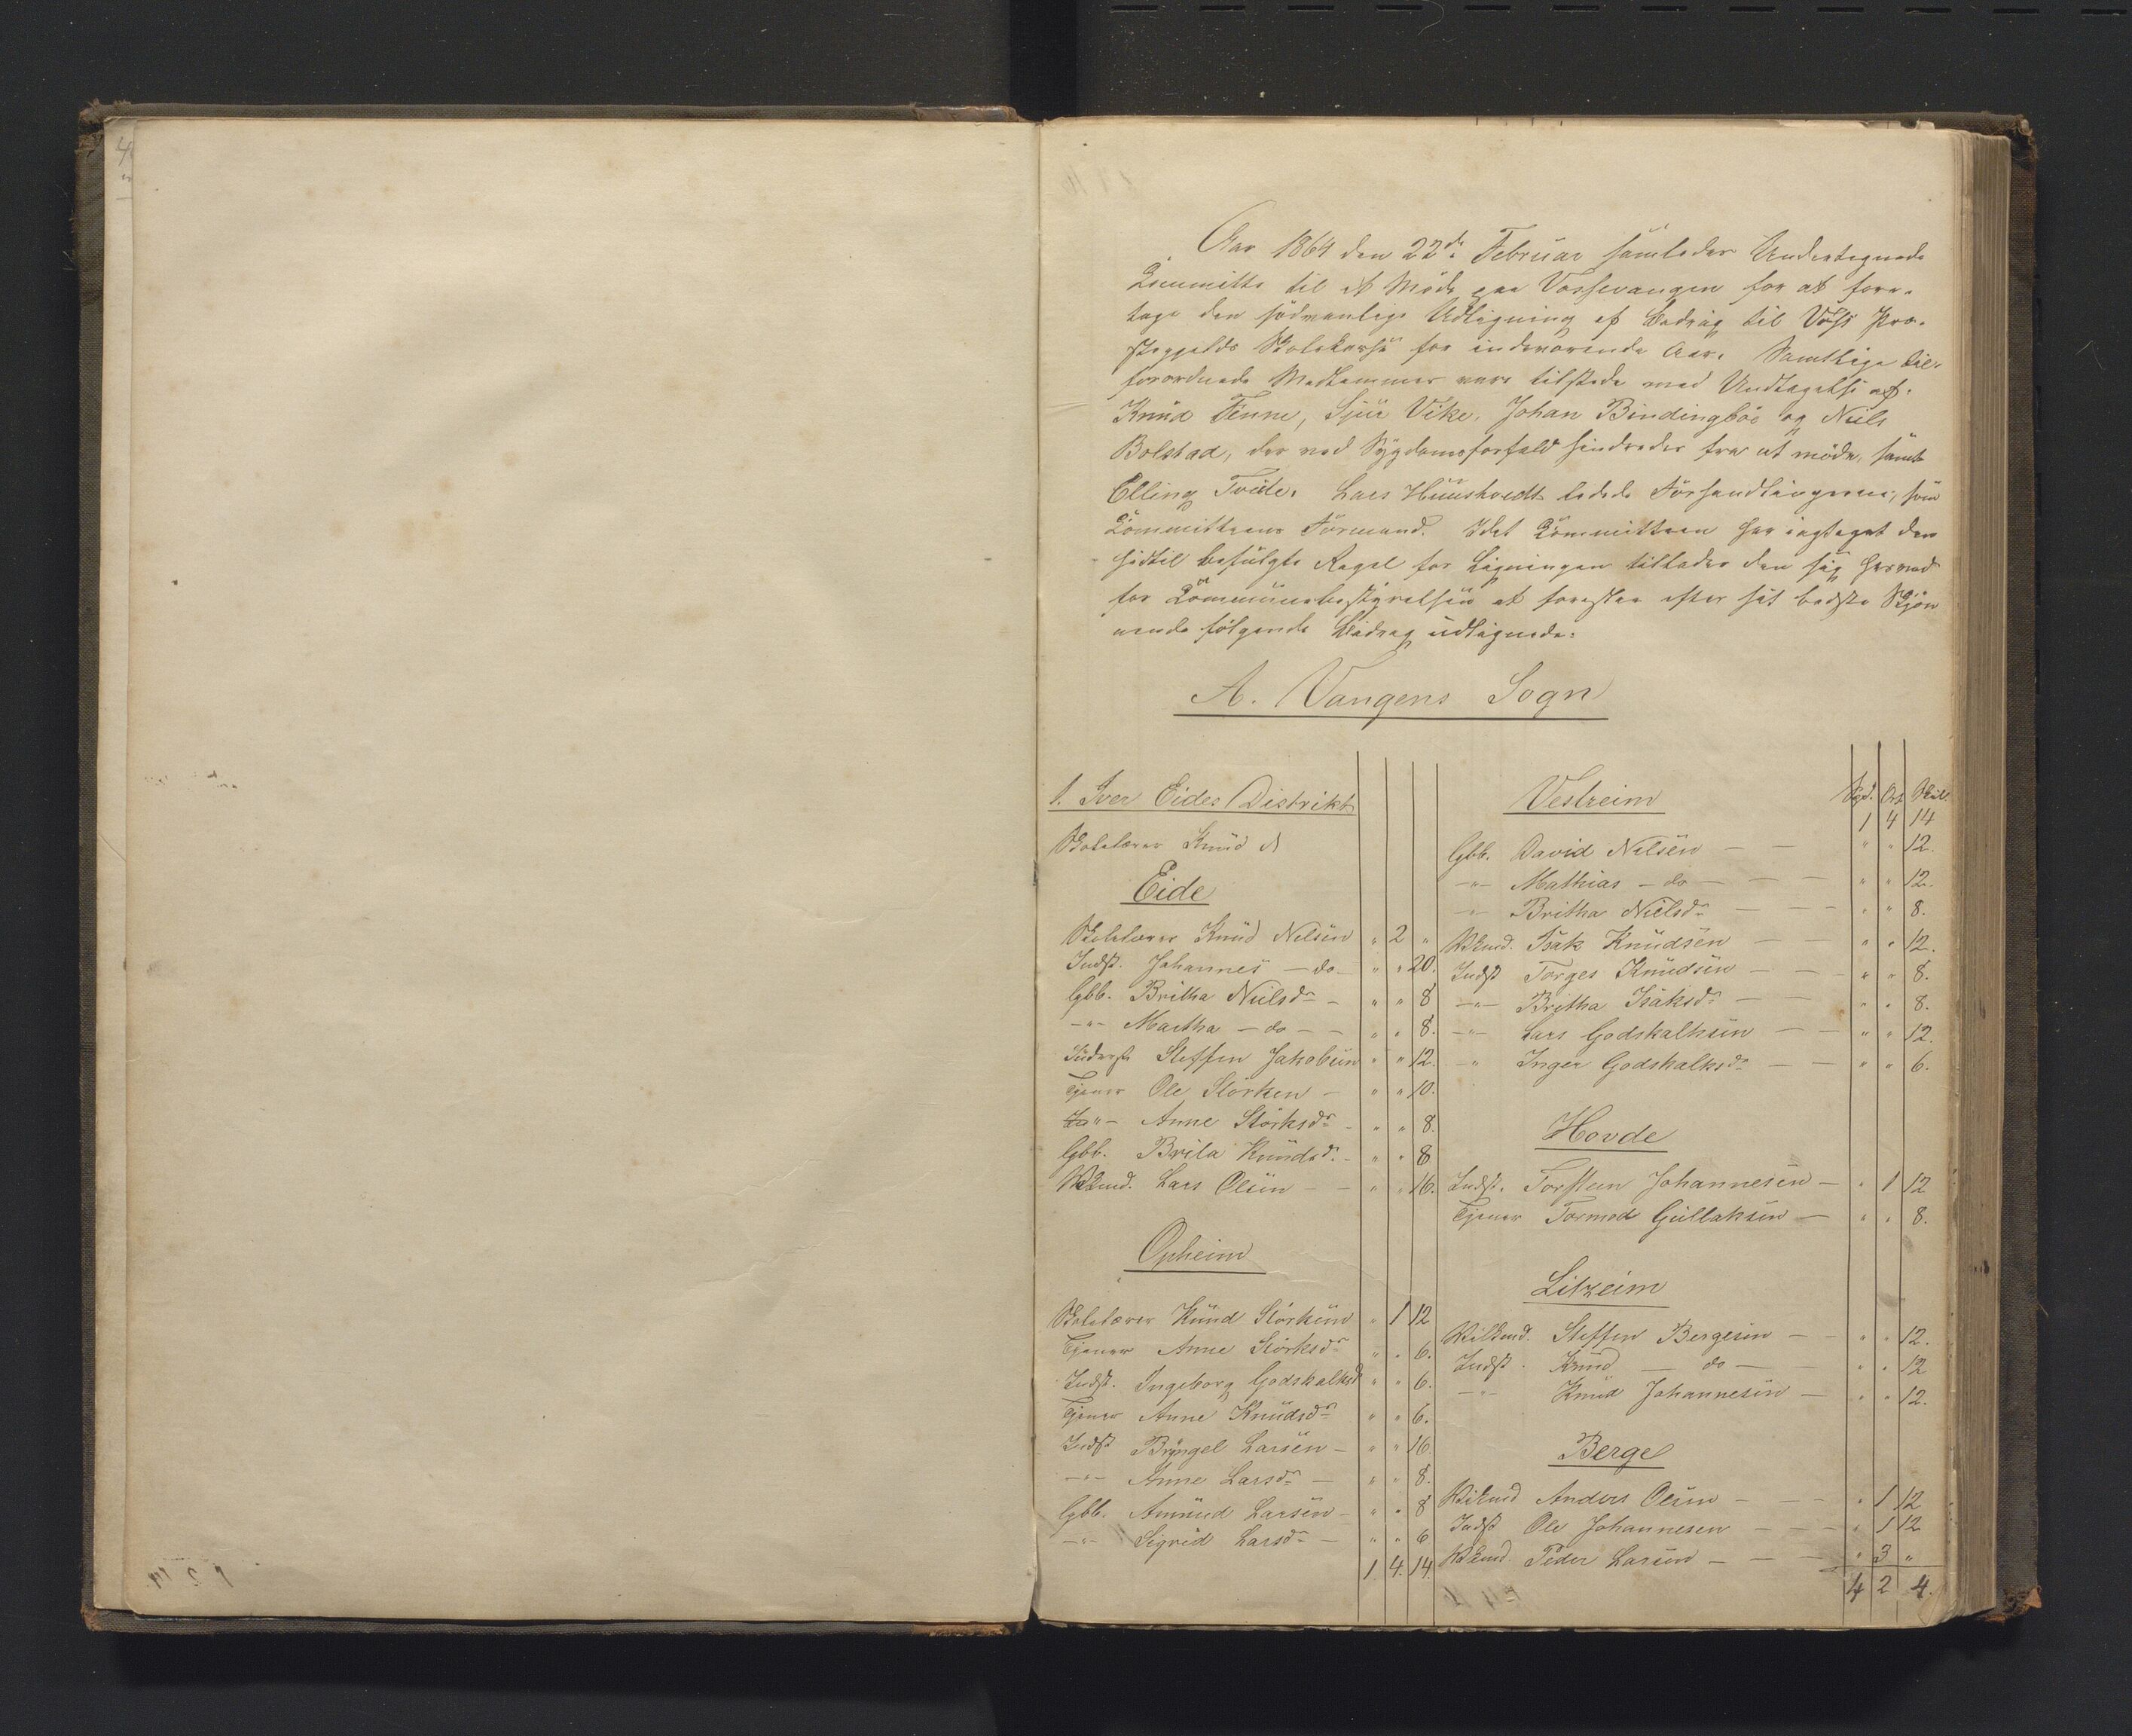 Aar 1864 den 22de Februar samledes Undertegnede
Committe til et Møde paa Vossevangen for at fore-
tage den sædvanlige Udligning af Bidrag til Voss Præ-
stegjelds Skolekasse for indeværende Aar. Samtlige til-
forordnede Medlemmer vare tilstede med Undtagelse af:
Knud Finne, Sjur Vike, Johan Bindingbø og Niels
Bolstad, der ved Sygdomsforfald hindredes fra at møde, samt
Elling Tvite. Lars Huustvedt ledede Forhandlingerne, som
Committeens Formand. Idet Committeen har iagttaget den
hidtil befulgte Regel for Ligningen tillader den sig herved
for Communebestyrelsen at foreslaa efter sit bedste Skjøn-
nende følgende Bidrag udlignede:
A. Vangens Sogn
1. Iver Eides Distrikt
Skolelærer Knud N
Eide
Skolelærer Knud Nelsen " 2 "
Indst. Johannes - do - " " 20.
Gbb. Britha Nielsdr - " " 8
-"- Martha - do - - " " 8.
Inderst Steffen Jakobsen " " 12.
Tjener Ole Størksen - " " 10.
-"- Anne Størksdr - " " 8.
Gbb. Brita Knudsdr. - " " 8
Lars Olsen - - " " 16.
Opheim
Skolelærer Knud Størksen " 1 12
Tjener Anne Størksdr " " 6.
Indst. Ingeborg Godskalksdr " " 6.
Tjener Anne Knudsdr " " 6.
Indst Bryngel Larsen - " " 16.
-"- Anne Larsdr - " " 8.
Gbb. Amund Larsen - " " 8
-"- Sigrid Larsdr - " " 6
1 4. 14.
Vestreim
Spd. Ort Skill.
1 4 14
Gbb. David Nelsen - - " " 12.
-"- Mathias - do - - - " " 12.
-"- Britha Nielsdr - - - " " 8.
Isak Knudsen - - " " 12.
Indst Torges Knudsen - - - " " 8.
-"- Britha Isaksdr - - " " 8.
-"- Lars Godskalksen - - " " 12.
-"- Inger Godskalksdr - - " " 6.
Hovde
Indst. Torsteen Johannesen - " 1 12
Tjener Tormod Gullaksen - " " 8.
Litreim
Steffen Bergesen - - " " 12.
Indst. Knud - do - " " 12
-"- Knud Johannesen - " " 12.
Berge
Anders Olsen - - - " 1 12
Indst Ole Johannesen - - - " 1 12
Peder Larsen - - - " 3 "
4 2 4.